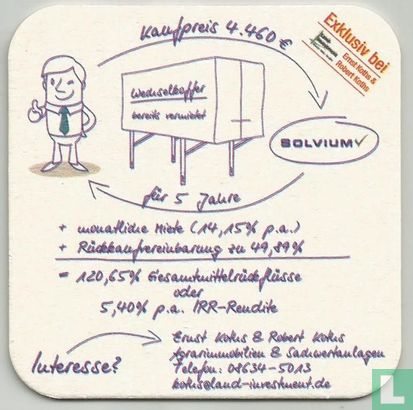 Kaufpreis 4.460 €
Exklusiv bei
Ernst Kothus &
Robert Kothus
Wechselkoffer
bereits vermietet
SOLVIUM
für 5 Jahre
+ monatliche Miete (14,15% p.a.)
+ Rückkaufvereinbarung zu 49,89%
= 120,65% Gesamtmittelrückflüsse
oder
5,40% p.a. IRR-Rendite
Interesse?
Ernst Kothus & Robert Kothus
Agrarimmobilien & Sachwertanlagen
Telefon: 08634-5013
@land-investment.de
LastDodo